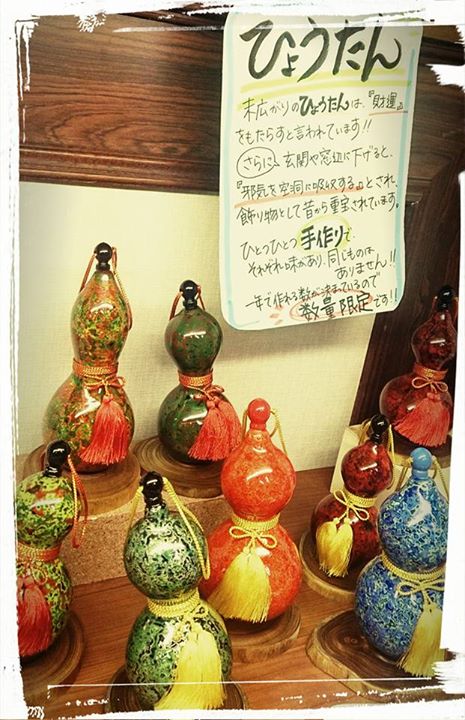 ひょうたん
末広がりのひょうたんは、『財運』
をもたらすと言われています!!
さらに、玄関や窓辺に下げると、
『邪気を空洞に吸収する』とされ、
飾り物として昔から重宝されています。
ひとつひとつ手作りで、
それぞれ味があり、同じものは
ありません!!
一年で作れる数が決まっているので
数量限定です!!